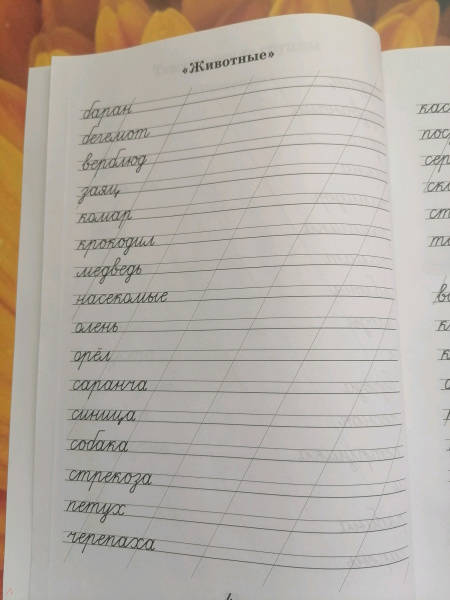 «Животные»
баран
бегемот
верблюд
заяц
комар
крокодил
медведь
насекомые
олень
орёл
саранча
синица
собака
стрекоза
петух
черепаха
кас
пос
сер
скл
ст